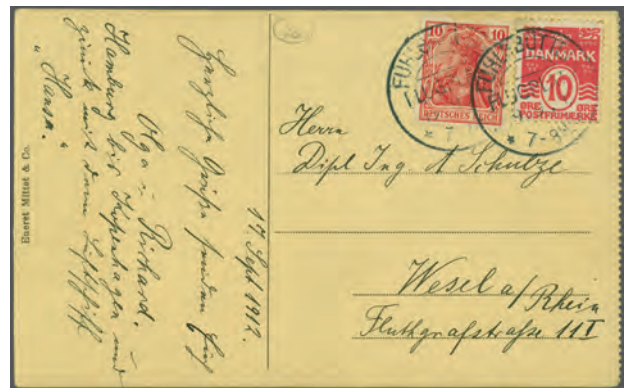 17. Sept 1912.
Herzliche Grüße senden Euch
Olga u. Richard.
Hamburg bis Kopenhagen und
zurück mit dem Luftschiff
„Hansa."
Eneret Mittet & Co.
10 10
DEUTSCHES REICH
DANMARK
10
ØRE ØRE
POSTFRIMÆRKE
FUHLSBÜTT
* 7-8
Herrn
Dipl Ing. A Schulze
Wesel a/Rhein
Fluthgrafstraße 11I